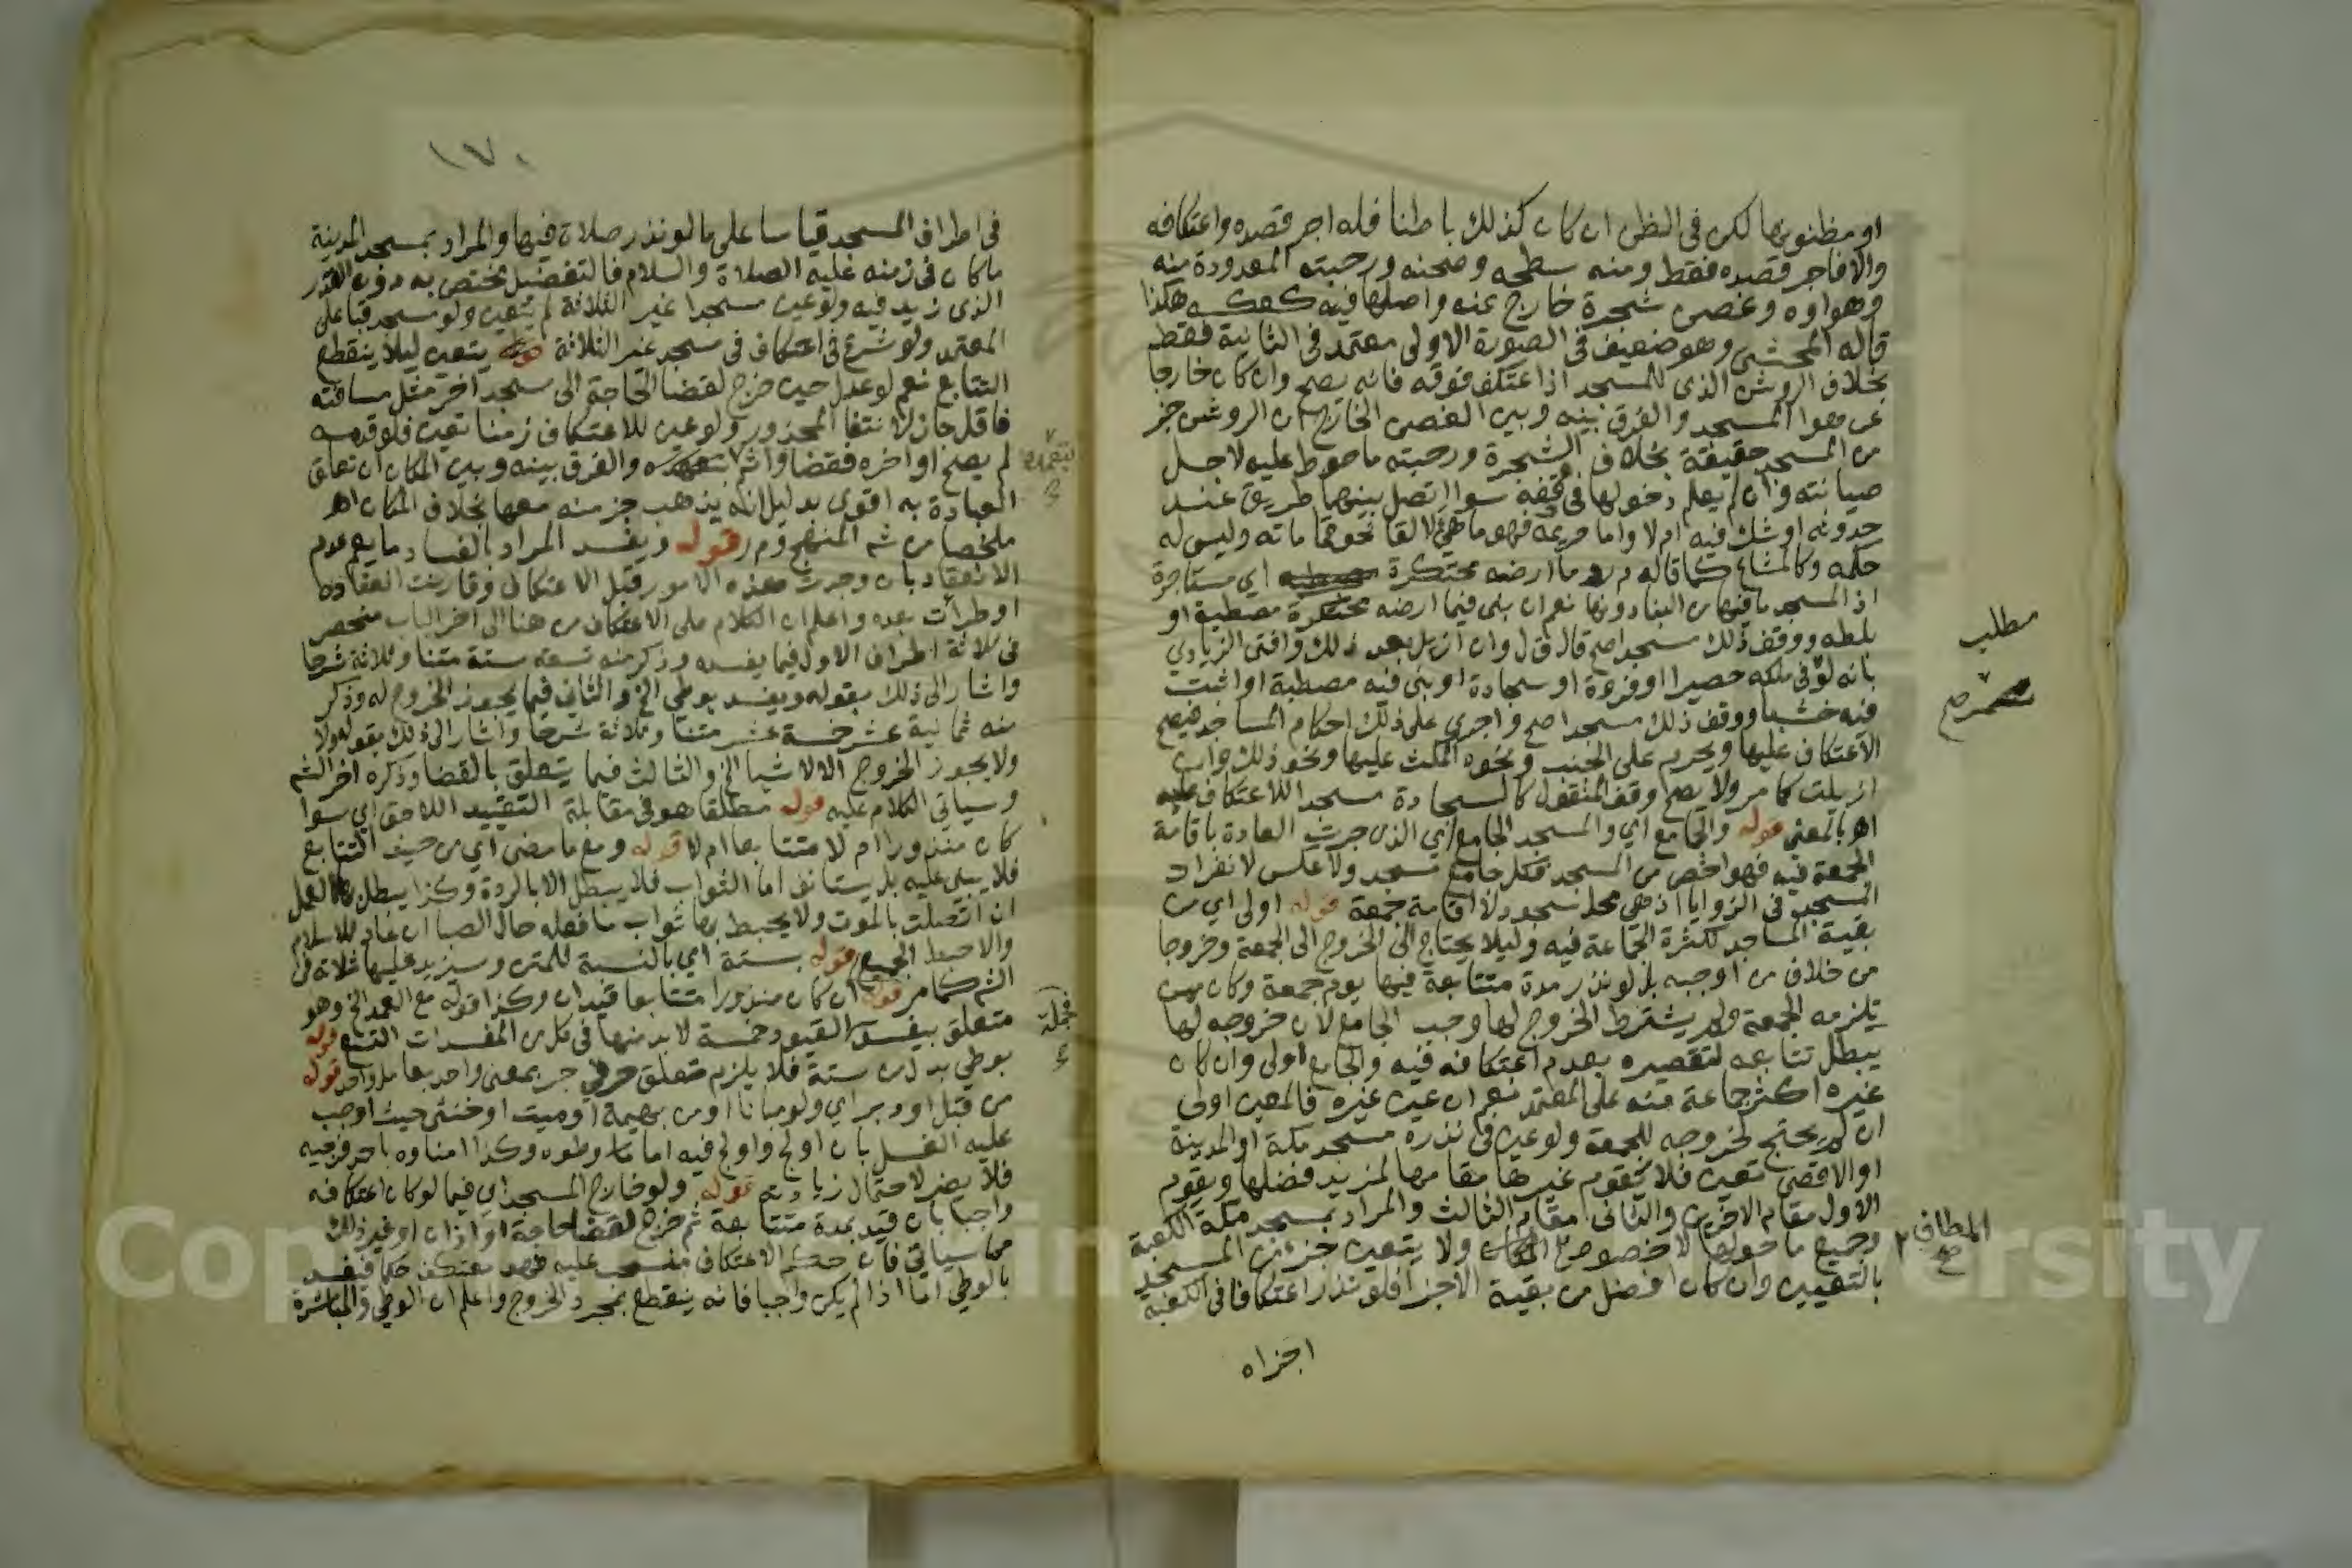 او مظنونها لكن في الظن ان كان كذلك باطنا فله اجر قصده واعتكافه
والا فاجر قصده فقط ومنه سطحه وصحنه ورحبته المعدودة منه
وهواوه وغصن شجرة خارج عنه واصلها فيه كعكسه هكذا
قاله المحشي وهو ضعيف في الصورة الاولى معتمد في الثانية فقط
بخلاف الروشن الذي للمسجد اذا اعتكف فوقه فانه يصح وان كان خارجا
عن هوا المسجد والفرق بينه وبين الغصن الخارج ان الروشن جز
من المسجد حقيقة بخلاف الشجرة ورحبته ما حوط عليه لاجل
صيانته وان لم يعلم دخولها في وقفه سوا اتصل بينهما طريق عند
حدوثه او شك فيه ام لا واما حريمه فهو ما تهيئ لالقا نحو قماماته وليس له
حكمه وكالمشاع كما قاله م ر ما ارضه محتكرة اي مستاجرة
اذ المسجد ما فيها من البنا دونها نعم ان بنى فيما ارضه محتكرة مصطبة او
بلطه ووقف ذلك مسجدا صح قال ق ل وان ازيل بعد ذلك وافتى الزيادي
بانه لو في ملكه حصيرا او فروة او سجادة او بنى فيه مصطبة او اثبت
فيه خشبا ووقف ذلك مسجدا صح واجرى على ذلك احكام المساجد فيصح
الاعتكاف عليها ويحرم على الجنب ونحوه المكث عليها ونحو ذلك وان
ازيلت كما مر ولا يصح وقف المنقول كالسجادة مسجدا للاعتكاف عليه
اهـ بالمعنى قوله والجامع اي والمسجد الجامع اي الذي جرت العادة باقامة
الجمعة فيه فهو اخص من المسجد فكل جامع مسجد ولا عكس لانفراد
المسجد في الزوايا اذ هي محل سجود لا اقامة جمعة قوله اولى اي من
بقية المساجد لكثرة الجماعة فيه وليلا يحتاج الى الخروج الى الجمعة وخروجا
من خلاف من اوجبه بل لو نذر مدة متتابعة فيها يوم جمعة وكان ممن
تلزمه الجمعة ولم يشترط الخروج لها وجب الجامع لان خروجه لها
يبطل تتابعه لتقصيره بعدم اعتكافه فيه والجامع اولى وان كان
غيره اكثر جماعة منه على المعتمد نعم ان عين غيره فالمعين اولى
ان لم يحتج لخروجه للجمعة ولو عين في نذره مسجد مكة او المدينة
او الاقصى تعين فلا يقوم غيرها مقامها لمزيد فضلها ويقوم
الاول مقام الاخيرين والثاني مقام الثالث والمراد بمسجد مكة الكعبة
وجميع ما حولها لا خصوص ولا يتعين جزء من المسجد
بالتعيين وان كان افضل من بقية الاجزا فلو نذر اعتكافا في الكعبة
اجزاه
مطلب
المطاف
صح
١٧٠
في اطراف المسجد قياسا على ما لو نذر صلاة فيها والمراد بمسجد المدينة
ما كان في زمنه عليه الصلاة والسلام فالتفضيل مختص به دون القدر
الذي زيد فيه ولو عين مسجدا غير الثلاثة لم يتعين ولو مسجد قبا على
المعتمد ولو شرع في اعتكاف في مسجد غير الثلاثة يتعين ليلا ينقطع
التتابع نعم لو عدل حين خرج لقضا الحاجة الى مسجد اخر مثل مسافته
فاقل جاز لانتفا المحذور ولو عين للاعتكاف زمنا تعين فلو قدمه
لم يصح او اخره فقضا واثم بتعمده والفرق بينه وبين المكان ان تعلق
العبادة به اقوى بدليل انه يذهب جز منه معها بخلاف المكان اهـ
ملخصا من شم المنهج و م ر قوله ويفسد المراد بالفساد ما يعم عدم
الانعقاد بان وجدت هذه الامور قبل الاعتكاف وقارنت انعقاده
او طرات بعده واعلم ان الكلام على الاعتكاف من هنا الى اخر الباب منحصر
في ثلاثة اطراف الاول فيما يفسده وذكر منه تسعة ستة متنا وثلاثة شرحا
واشار الى ذلك بقوله ويفسد بوطي الخ والثاني فيما يجوز الخروج له وذكر
منه ثمانية عشر خمسة عشر متنا وثلاثة شرحا واشار الى ذلك بقوله ولا
ولا يجوز الخروج الا لاشيا الخ والثالث فيما يتعلق بالقضا وذكره اخر الشم
وسياتي الكلام عليه قوله مطلقا هو في مقابلة التقييد اللاحق اي سوا
كان منذورا ام لا متتابعا ام لا قوله ومع ما مضى اي من حيث التتابع
فلا يبنى عليه بل يستانف اما الثواب فلا يبطل الا بالردة وكذا يبطل بها العمل
ان اتصلت بالموت ولا يحبط بها ثواب ما فعله حال الصبا ان عاد للاسلام
والا حبط الجميع قوله بستة اي بالنسبة للمتن وسيزيد عليها ثلاثة في
الشم كما مر قوله ان كان منذورا متتابعا قيدان وكذا قوله مع العمد الخ وهو
متعلق بيفسد القيود خمسة لابد منها في كل من المفسدات التسع قوله
بوطي بدل من ستة فلا يلزم تعلق حرفي جر بمعنى واحد بعامل واحد قوله
من قبل او دبر اي ولو مبانا او من بهيمة او ميت او خنثى حيث اوجب
عليه الغسل بان اولج واولج فيه اما وطوه وكذا امناوه باحد فرجيه
فلا يضر لاحتمال زيادته قوله ولو خارج المسجد اي فيما لو كان اعتكافه
واجبا بان قيد بمدة متتابعة ثم خرج لقضا حاجة او اذان او غير ذلك
مما سياتي فان حكم الاعتكاف منسحب عليه فهو معتكف حكما فيفسد
بالوطي اما اذا لم يكن واجبا فانه ينقطع بمجرد الخروج واعلم ان الوطي والمباشرة
بتعمده
Cop in ersity